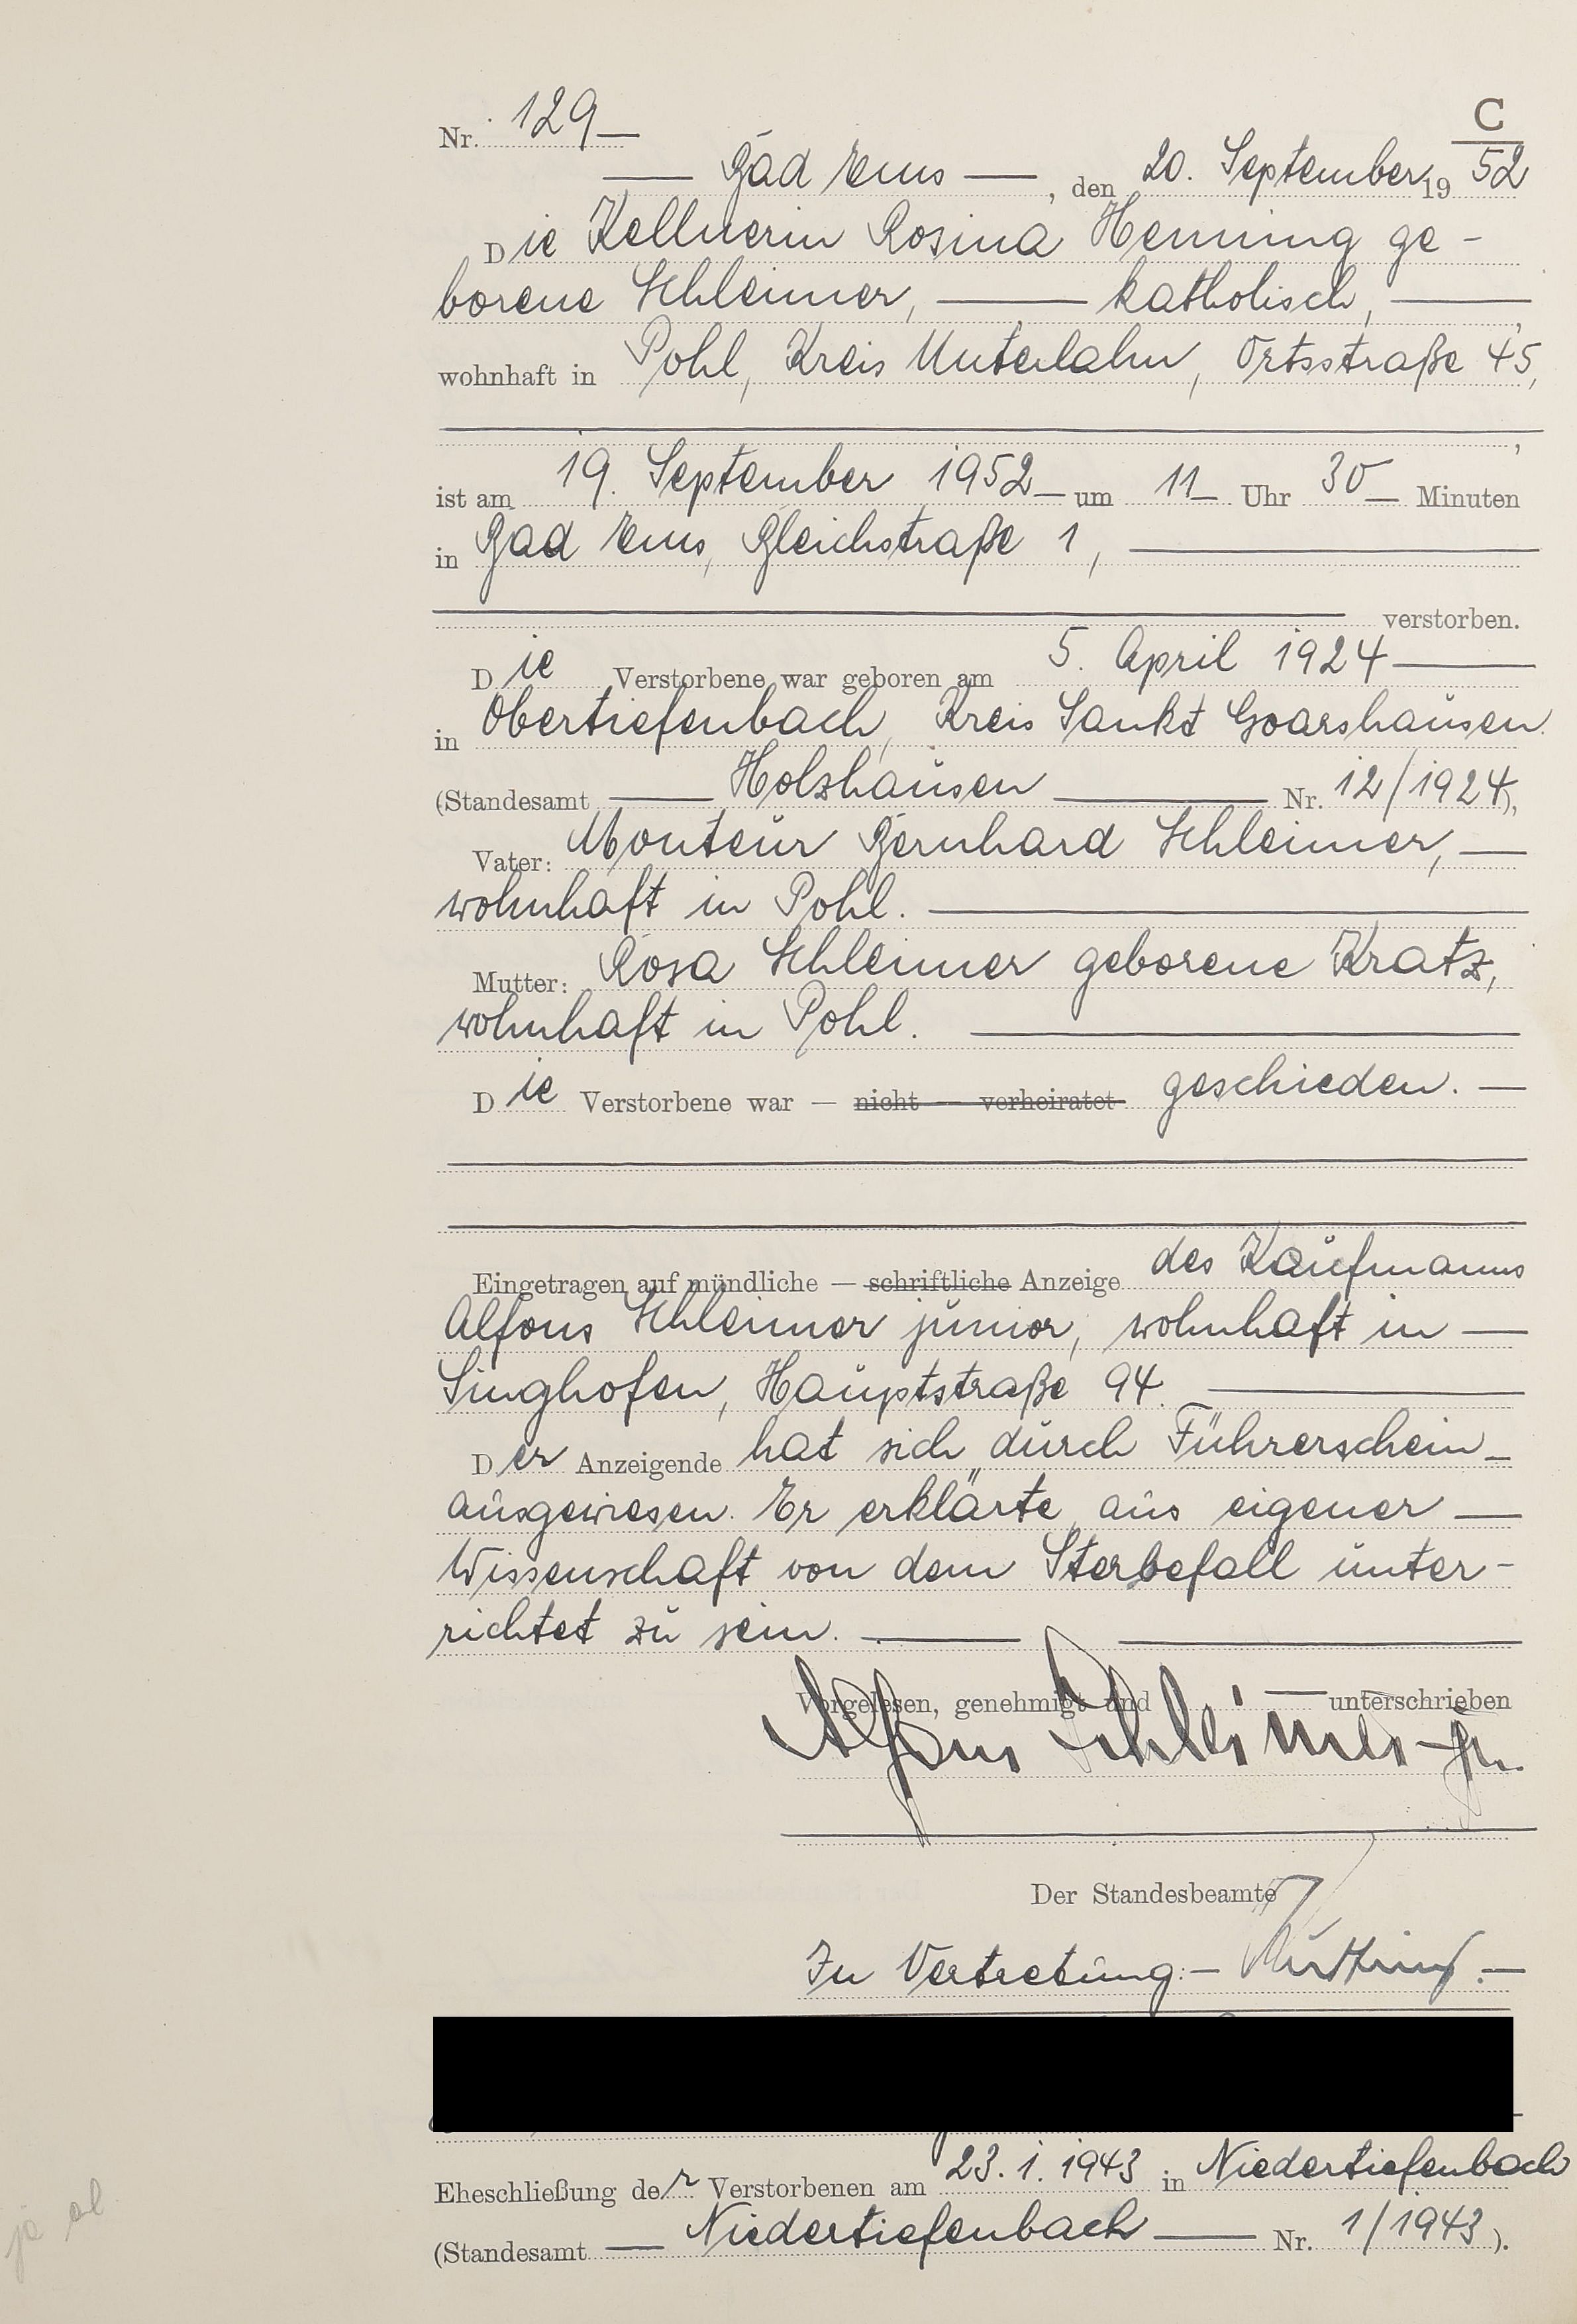 C
Nr. 129
Bad Ems, den 20. September 1952
Die Kellnerin Rosina Henning ge-
borene Schleimer, katholisch,
wohnhaft in Pohl, Kreis Unterlahn, Ortsstraße 45,
ist am 19. September 1952 um 11 Uhr 30 Minuten
in Bad Ems, Bleichstraße 1,
verstorben.
Die Verstorbene war geboren am 5. April 1924
in Obertiefenbach, Kreis Sankt Goarshausen.
(Standesamt Holzhausen Nr. 12/1924),
Vater: Monteur Bernhard Schleimer,
wohnhaft in Pohl.
Mutter: Rosa Schleimer geborene Kratz,
wohnhaft in Pohl.
Die Verstorbene war — nicht — verheiratet geschieden.
Eingetragen auf mündliche — schriftliche Anzeige des Kaufmanns
Alfons Schleimer junior, wohnhaft in
Singhofen, Hauptstraße 94.
Der Anzeigende hat sich durch Führerschein
ausgewiesen. Er erklärte, aus eigener
Wissenschaft von dem Sterbefall unter-
richtet zu sein.
Vorgelesen, genehmigt und unterschrieben
Alfons Schleimer jr.
Der Standesbeamte
In Vertretung:
Eheschließung der Verstorbenen am 23.1.1943 in Niedertiefenbach
(Standesamt Niedertiefenbach Nr. 1/1943).